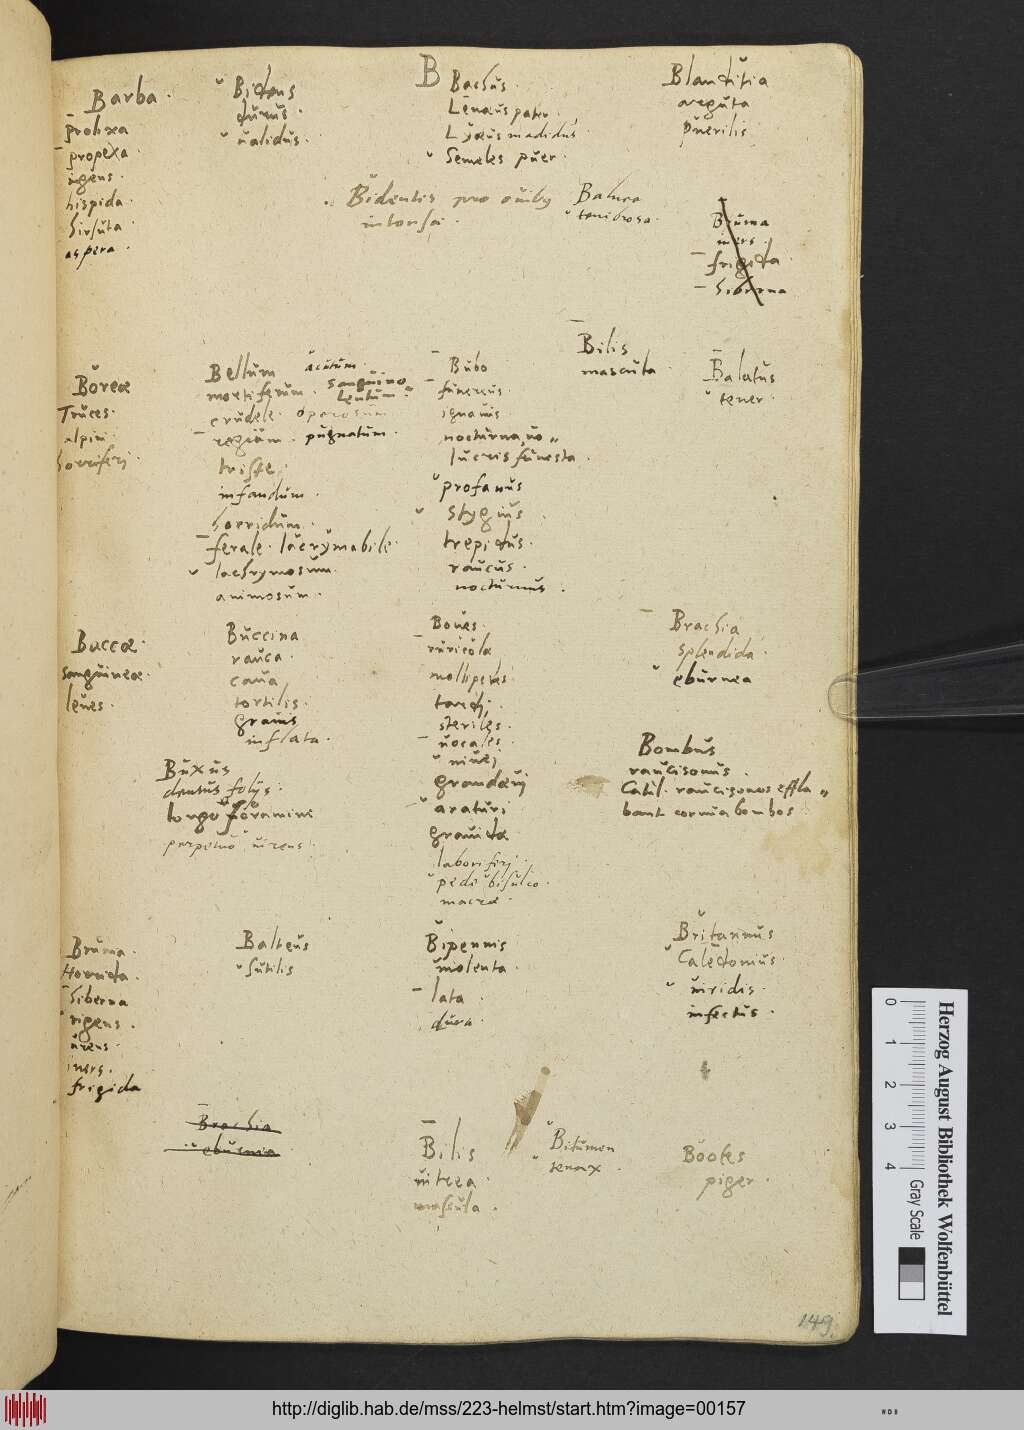 B
Barba.
prolixa
propexa.
ingens.
hispida.
hirsuta.
aspera.
Bidens
durus.
ualidus.
Bachus.
Lenæus pater.
Lyæus madidus.
Semeles puer.
Blanditia
arguta
puerilis.
Bidentis pro ouibus
intonsa.
Bruma
iners.
frigida.
hiberna
Boreæ
Truces.
alpini.
horriferi.
Bellum
mortiferum.
crudele. operosum
regium. pugnatum.
acutum.
sanguineo
lentum.
triste.
infandum.
horridum.
ferale. lacrymabile.
lachrymosum.
animosum.
Bubo
funereus
ignauus
nocturna uo„
lucris funesta.
profanus
stygius.
trepidus.
raucus.
nocturnus.
Bilis
mascula.
Balatus
tener.
Baccæ.
sanguineæ.
leues.
Buccina
rauca.
caua.
tortilis.
grauis
inflata.
Boues.
ruricolæ
mollipedes.
tardi.
steriles.
uocales.
niuei
grandæui
araturi
grauidæ
laboriferi.
pede bisulco.
macræ.
Brachia
splendida.
eburnea
Buxus
densus folijs.
longo foramine
perpetuo uirens.
Bombus
raucisonus.
Catul. raucisonos effla„
bant cornua bombos
Bruma.
Horrida.
hiberna
rigens.
urens.
iners.
frigida
Balteus
sutilis
Bipennis
uiolenta.
lata.
dura.
Britannus
Caledonius.
uiridis.
infectus.
Brachia
eburnea
Bilis
uitrea.
mascula.
Bitumen
tenax.
Bootes
piger.
149.
Herzog August Bibliothek Wolfenbüttel
0 1 2 3 4 Gray Scale
http://diglib.hab.de/mss/223-helmst/start.htm?image=00157